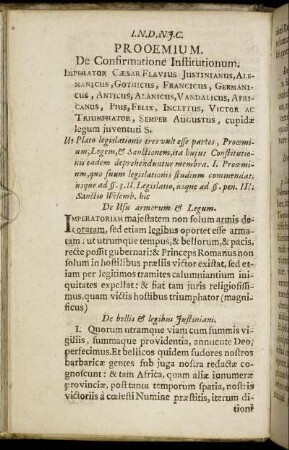 I.N.D.N.J.C.
PROOEMIUM.
De Confirmatione Institutionum.
IMPERATOR CÆSAR FLAVIUS JUSTINIANUS, ALE-
MANICUS, GOTHICUS, FRANCICUS, GERMANI-
CUS, ANTICUS, ALANICUS, VANDALICUS, AFRI-
CANUS, PIUS, FELIX, INCLYTUS, VICTOR AC
TRIUMPHATOR, SEMPER AUGUSTUS, cupidæ
legum juventuti S.
Ut Plato legislationis tres vult esse partes, Proœmi-
um, Legem, & Sanctionem, ita hujus Constitutio-
nis eadem deprehenduntur membra. I. Proœmi-
um, quo suum legislationis studium commendat,
usque ad §. 3. II. Legislatio, usque ad §. pen. III.
Sanctio Wisemb. hic
De Usu armorum & Legum.
IMPERATORIAM majestatem non solum armis de-
coratam, sed etiam legibus oportet esse arma-
tam: ut utrumque tempus, & bellorum, & pacis,
recte possit gubernari: & Princeps Romanus non
solum in hostilibus præliis victor existat, sed eti-
am per legitimos tramites calumniantium iniqui-
tates expellat: & fiat tam juris religiosissi-
mus, quam victis hostibus triumphator (magni-
ficus)
De bellis & legibus Justiniani.
1. Quorum utramque viam cum summis vi-
giliis, summaque providentia, annuente Deo,
perfecimus. Et bellicos quidem sudores nostros
barbaricæ gentes sub juga nostra redactæ co-
gnoscunt: & tam Africa, quam aliæ innumeræ
provinciæ, post tanta temporum spatia, nostris
victoriis a cœlesti Numine præstitis, iterum di-
tioni